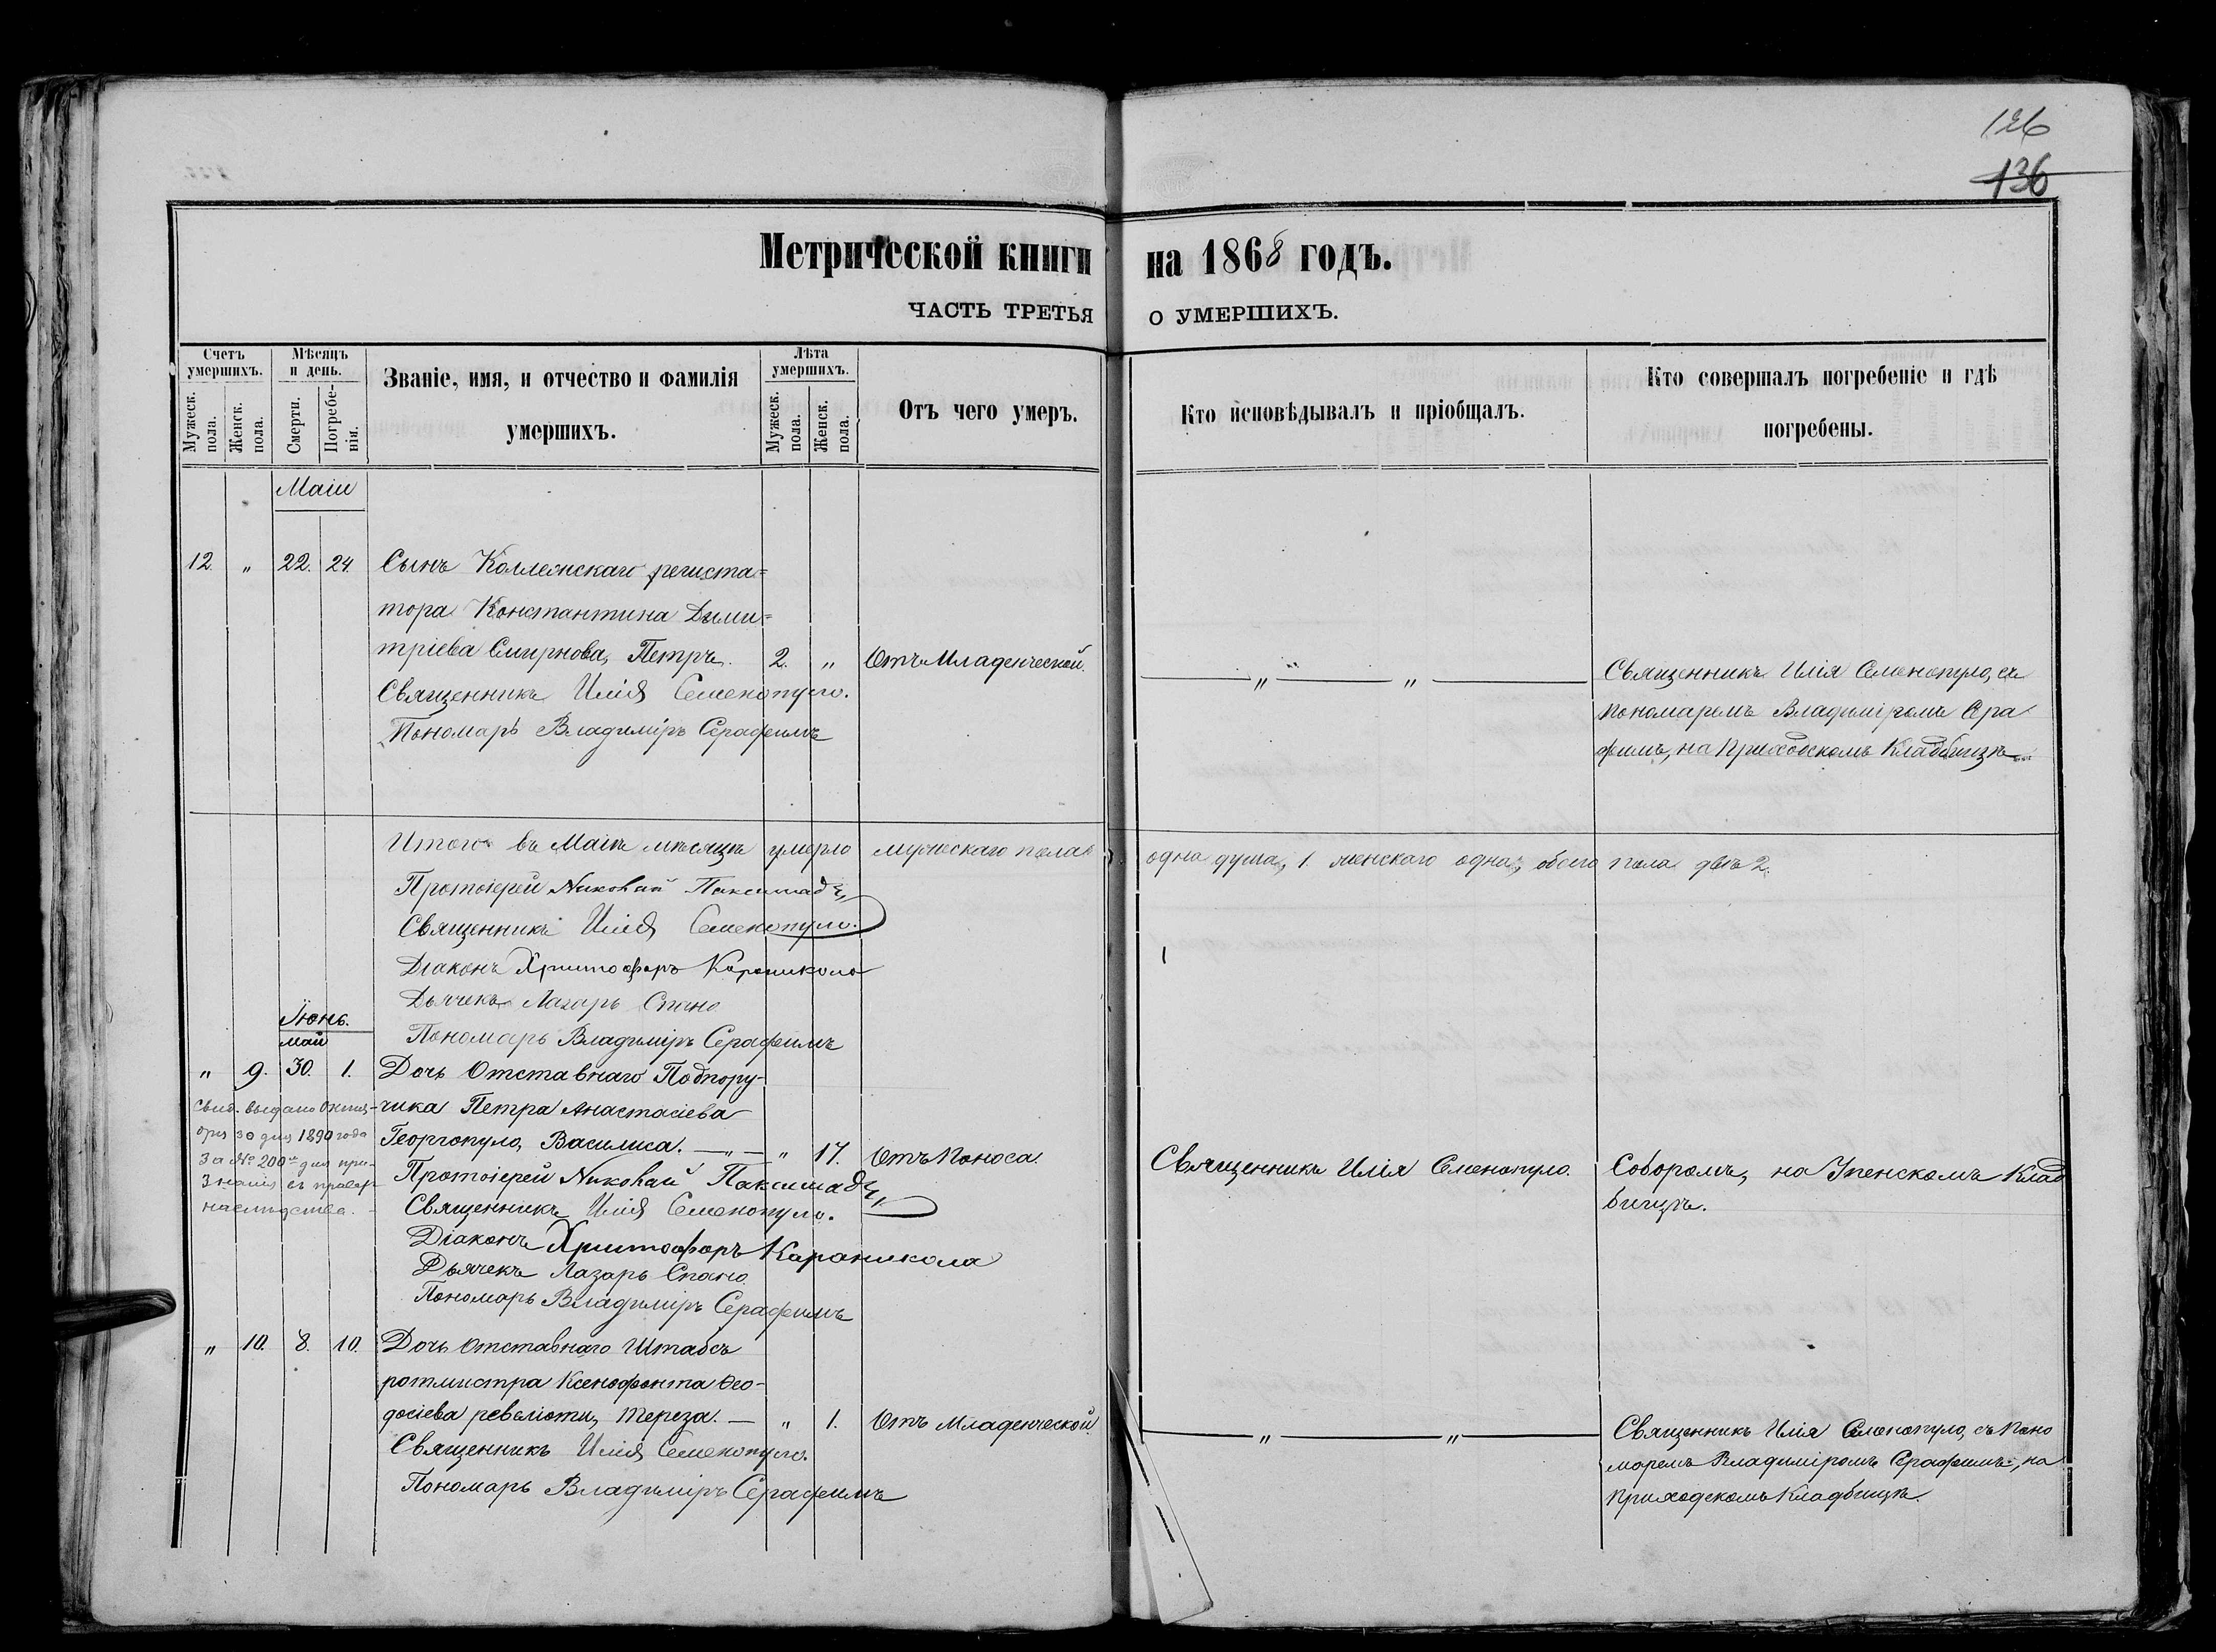 126
136
Метрической книги на 1868 годъ.
ЧАСТЬ ТРЕТЬЯ О УМЕРШИХЪ.
Счетъ умершихъ.
Мужеск. пола.
Женск. пола.
Мѣсяцъ и день.
Смерти.
Погребе-нія.
Званіе, имя, и отчество и фамилія
умершихъ.
Лѣта умершихъ.
Мужеск. пола.
Женск. пола.
Отъ чего умеръ.
Кто исповѣдывалъ и пріобщалъ.
Кто совершалъ погребеніе и гдѣ
погребены.
Маіи
12. „ 22. 24. Сынъ Коллежскаго региста=
тора Константина Дыми=
тріева Смирнова, Петръ. 2. „ Отъ Младенческой.
Священникъ Илія Семенопуло.
Пономарь Владиміръ Серафимъ
— „ — „ —
Священникъ Илія Семенопуло, съ
пономаремъ Владиміромъ Сера
фимъ, на приходскомъ кладбищѣ
Итого въ Маіѣ мѣсяцѣ умерло мужескаго пола одна душа, 1. женскаго одна, обоего пола двѣ 2.
Протоіерей Николай Паксимадъ
Священникъ Илія Семенопуло.
Діаконъ Христофоръ Караникола
Дьячекъ Лазарь Спано
Пономарь Владиміръ Серафимъ
Іюнь.
Май
„ 9. 30. 1. Дочь Отставнаго Подпору-
чика Петра Анастасіева
Георгопуло, Василиса. — „ — „ 17. Отъ Поноса.
Свид. выдано Октя-
бря 30 дня 1890 года
за № 200 для при-
знанія въ правах
наслѣдства.
Протоіерей Николай Паксимадъ
Священникъ Илія Семенопуло.
Діаконъ Христофоръ Караникола
Дьячекъ Лазарь Спано
Пономарь Владиміръ Серафимъ
Священникъ Илія Семенопуло.
Соборомъ, на Успенскомъ Клад
бищѣ.
„ 10. 8. 10. Дочь Отставнаго Штабсъ
ротмистра Ксенофонта Ѳео-
досіева ревеліоти, Тереза. — „ 1. Отъ Младенческой.
Священникъ Илія Семенопуло.
Пономарь Владиміръ Серафимъ
— „ — „ —
Священникъ Илія Семенопуло, съ Поно
маремъ Владиміромъ Серафимъ, на
приходскомъ кладбищѣ.